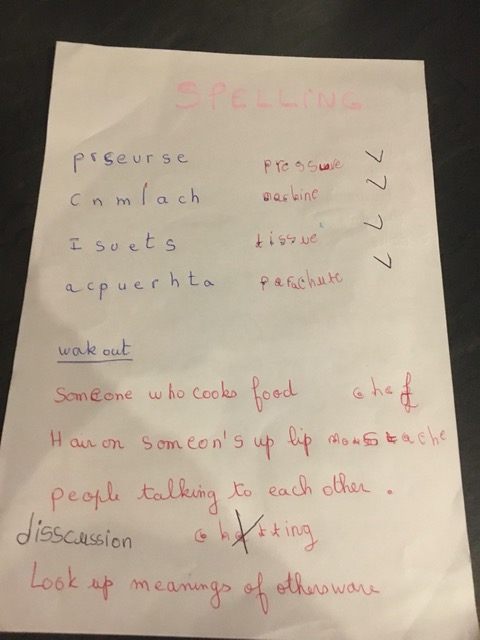 SPELLING
prseurse pressure
cnmiach machine
Isuets tissue
acpuerhta parachute
wak out
Someone who cooks food chef
Hair on someon's up lip moustache
people talking to each other.
disscussion chatting
Look up meanings of othersware